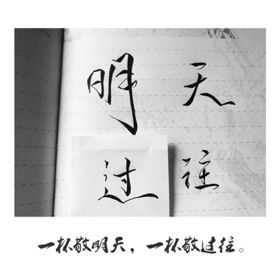 明天
过往
一杯敬明天，一杯敬过往。